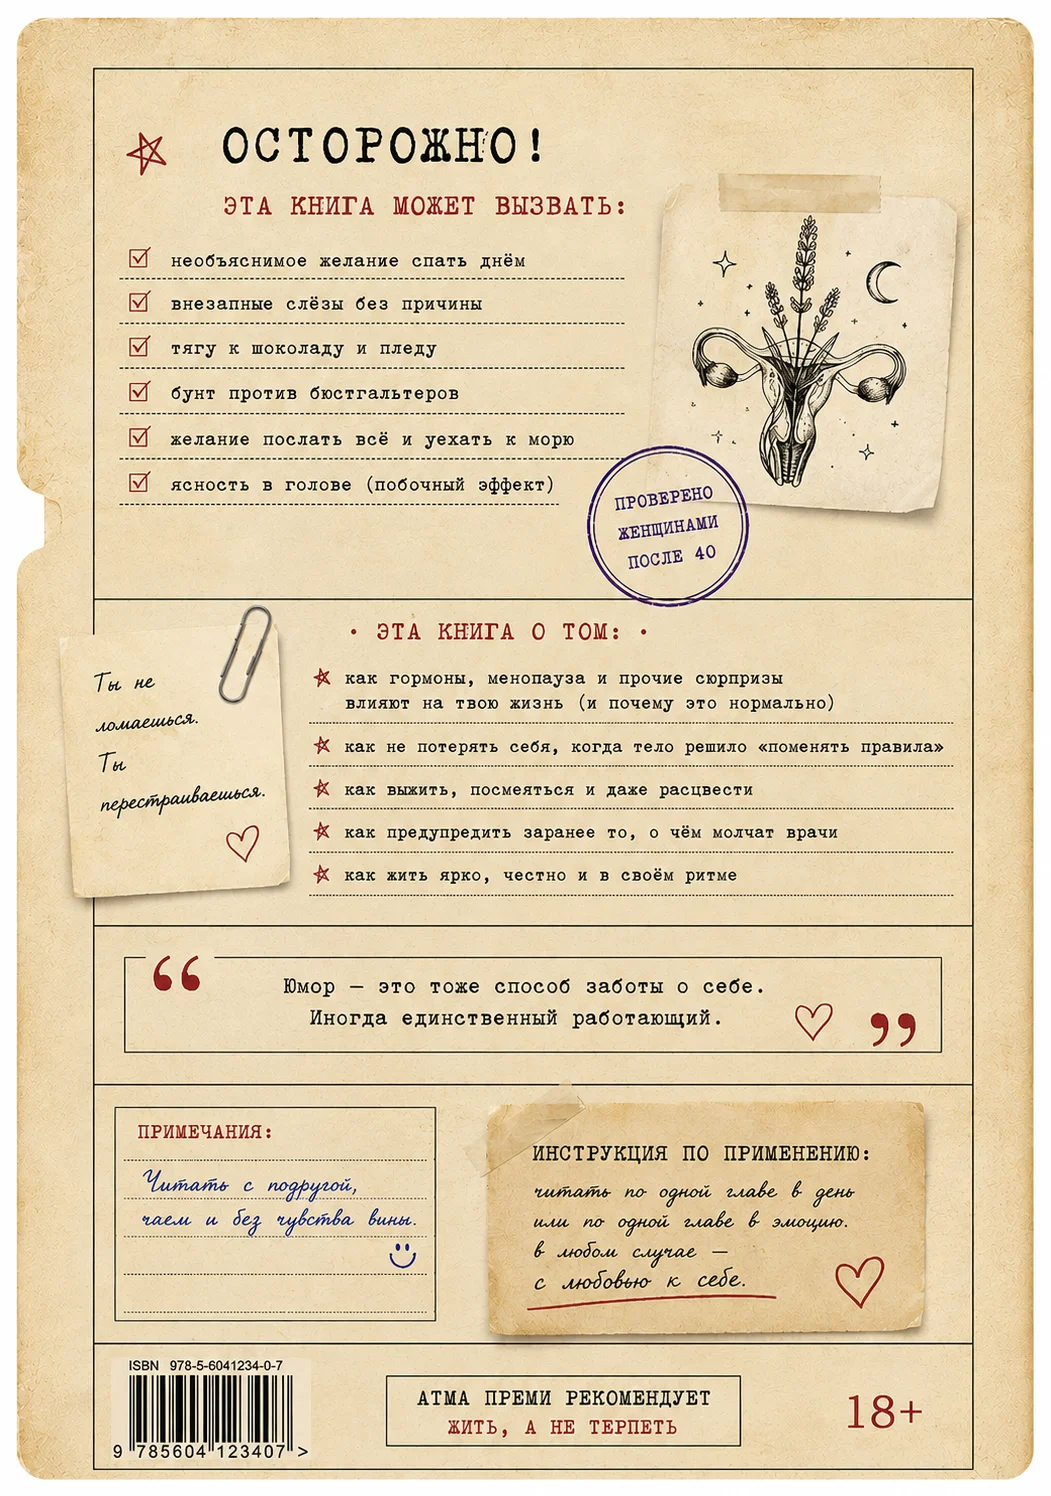 ОСТОРОЖНО!
ЭТА КНИГА МОЖЕТ ВЫЗВАТЬ:
необъяснимое желание спать днём
внезапные слёзы без причины
тягу к шоколаду и пледу
бунт против бюстгальтеров
желание послать всё и уехать к морю
ясность в голове (побочный эффект)
ПРОВЕРЕНО
ЖЕНЩИНАМИ
ПОСЛЕ 40
Ты не
ломаешься.
Ты
перестраиваешься.
• ЭТА КНИГА О ТОМ: •
как гормоны, менопауза и прочие сюрпризы
влияют на твою жизнь (и почему это нормально)
как не потерять себя, когда тело решило «поменять правила»
как выжить, посмеяться и даже расцвести
как предупредить заранее то, о чём молчат врачи
как жить ярко, честно и в своём ритме
“ Юмор — это тоже способ заботы о себе.
Иногда единственный работающий. ”
ПРИМЕЧАНИЯ:
Читать с подругой,
чаем и без чувства вины.
ИНСТРУКЦИЯ ПО ПРИМЕНЕНИЮ:
читать по одной главе в день
или по одной главе в эмоцию.
в любом случае —
с любовью к себе.
ISBN 978-5-6041234-0-7
9 785604 123407 >
АТМА ПРЕМИ РЕКОМЕНДУЕТ
ЖИТЬ, А НЕ ТЕРПЕТЬ
18+